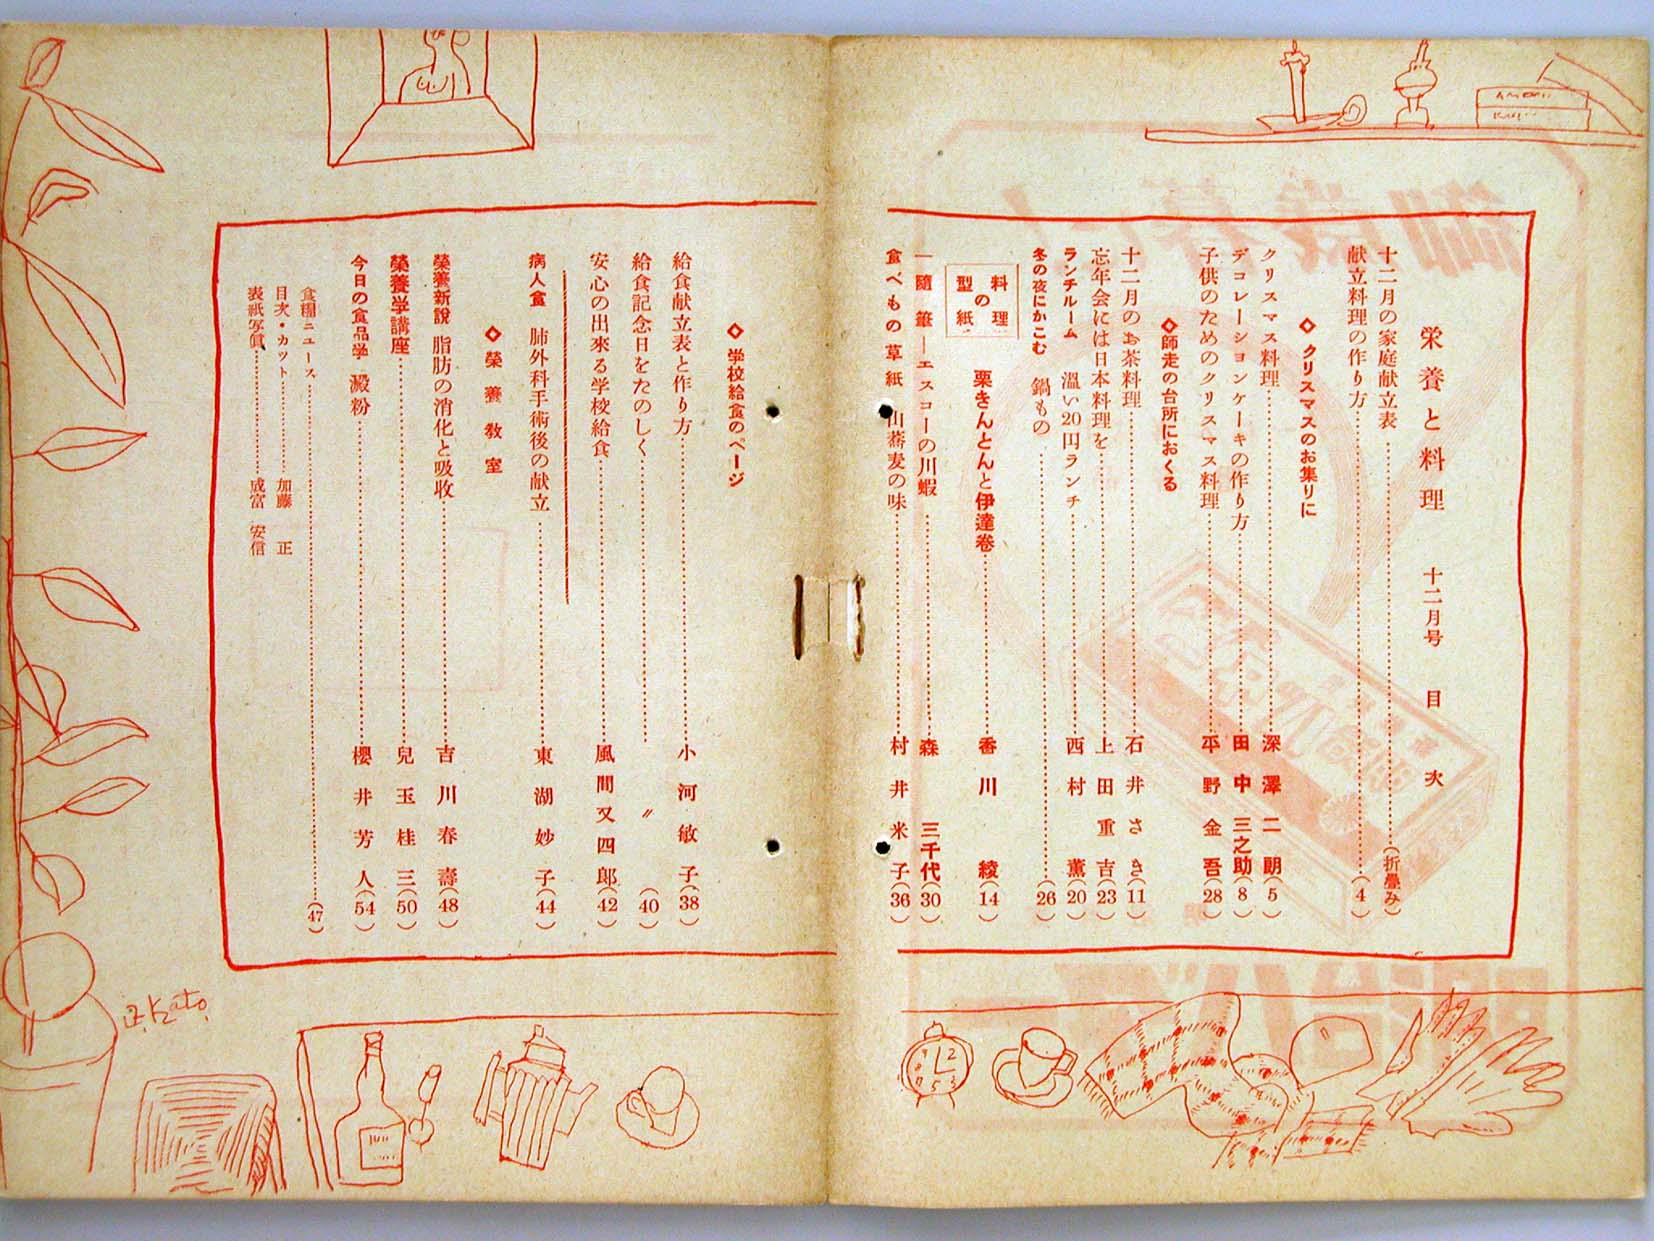 栄養と料理 十二月号 目次
十二月の家庭献立表…(折疊み)
献立料理の作り方…(4)
◇クリスマスのお集りに
クリスマス料理…深澤二朗(5)
デコレーションケーキの作り方…田中三之助(8)
子供のためのクリスマス料理…平野金吾(28)
◇師走の台所におくる
十二月のお茶料理…石井さき(11)
忘年会には日本料理を…上田重吉(23)
ランチルーム 温い20円ランチ…西村薫(20)
冬の夜にかこむ 鍋もの…(26)
料理の型紙 栗きんとんと伊達巻…香川綾(14)
―隨筆―エスコーの川蝦…森三千代(30)
食べもの草紙 山蕎麦の味…村井米子(36)
◇学校給食のページ
給食献立表と作り方…小河敏子(38)
給食記念日をたのしく…〃(40)
安心の出來る学校給食…風間又四郞(42)
病人食 肺外科手術後の献立…東湖妙子(44)
◇榮養教室
榮養新説 脂肪の消化と吸收…吉川春壽(48)
榮養学講座…兒玉桂三(50)
今日の食品学 澱粉…櫻井芳人(54)
食糧ニュース…(47)
目次・カット…加藤正
表紙写眞…成富安信
Kato